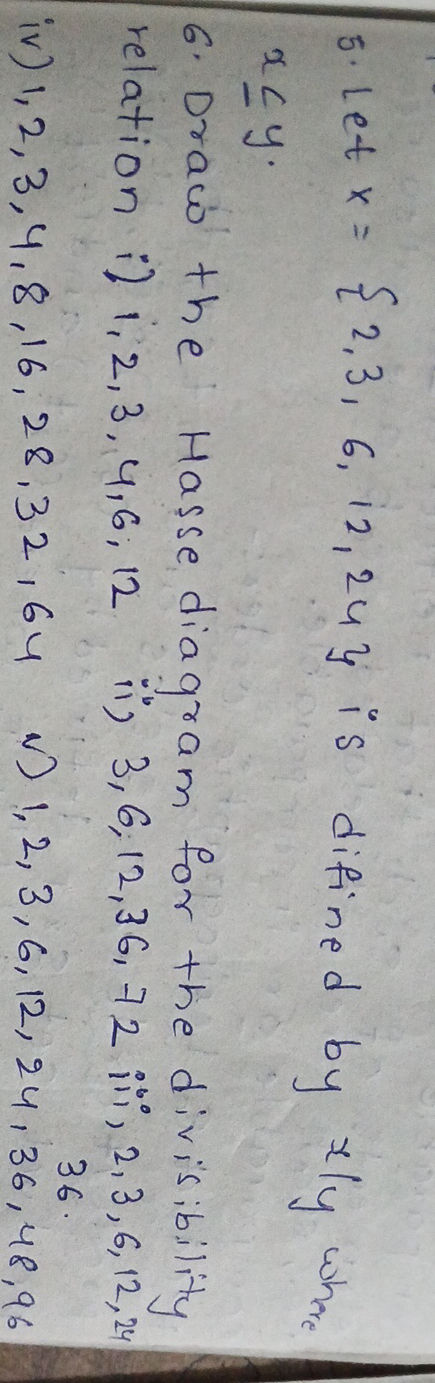 5. Let x = { 2, 3, 6, 12, 24 } is difined by x/y where
x ≤ y.
6. Draw the Hasse diagram for the divisibility
relation i) 1, 2, 3, 4, 6, 12 ii) 3, 6, 12, 36, 72 iii) 2, 3, 6, 12, 24
36.
iv) 1, 2, 3, 4, 8, 16, 28, 32, 64 v) 1, 2, 3, 6, 12, 24, 36, 48, 96